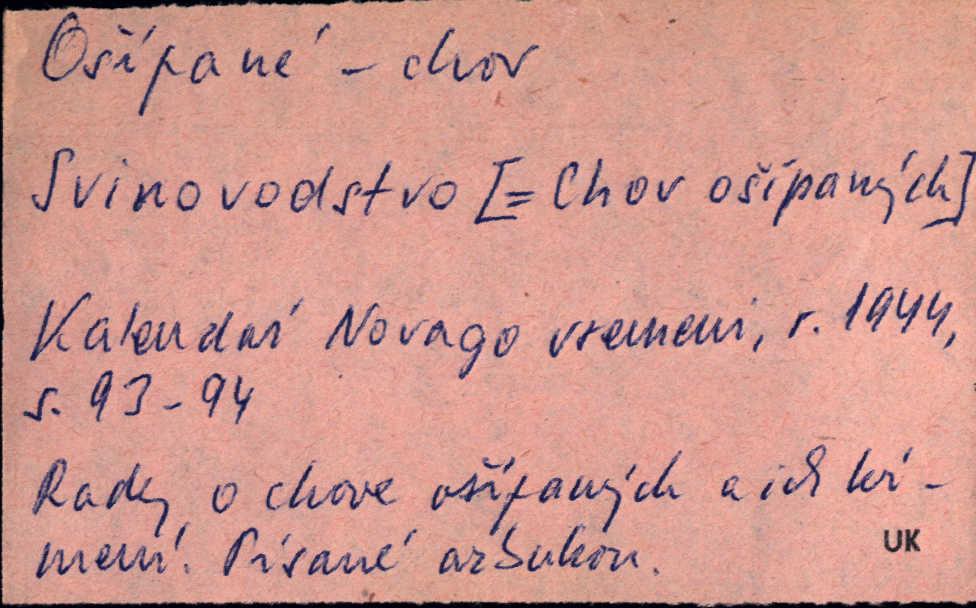 Ošípané – chov
Svinovodstvo [= Chov ošípaných]
Kalendar Novago vremeni, r. 1944,
s. 93-94
Rady o chove ošípaných a ich kŕ-
mení. Písané azbukou.
UK